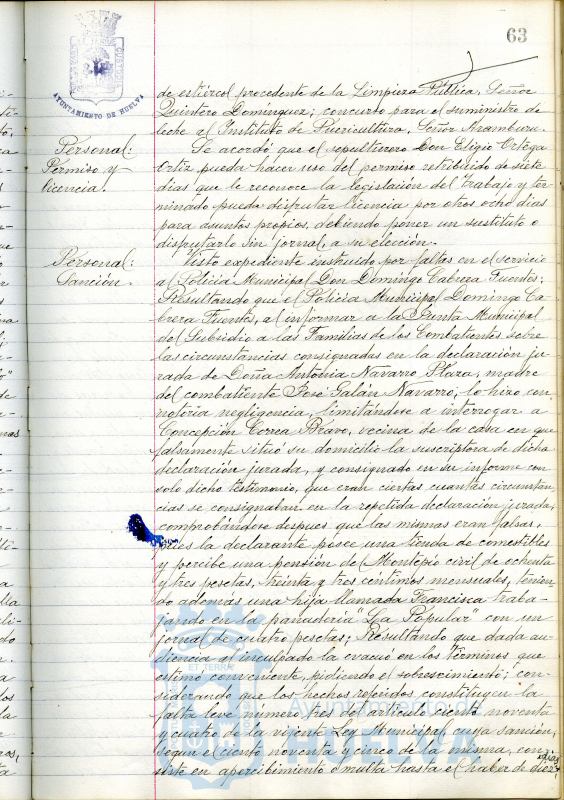 63
AYUNTAMIENTO DE HUELVA
de estiércol procedente de la Limpieza Pública, Señor
Quintero Domínguez; concurso para el suministro de
leche al Instituto de Puericultura, Señor Aramburu.
Personal:
Permiso y
licencia.
Se acordó que el sepulturero Don Eligio Ortega
Ortiz pueda hacer uso del permiso retribuido de siete
días que le reconoce la legislación del Trabajo y ter-
minado pueda disfrutar licencia por otros ocho días
para asuntos propios, debiendo poner un sustituto o
disfrutarlo sin jornal, a su elección.
Personal:
Sanción.
Visto expediente instruido por faltas en el servicio
al Policía Municipal Don Domingo Cabrera Fuentes;
Resultando que el Policía Municipal Domingo Ca-
brera Fuentes, al informar a la Junta Municipal
del Subsidio a las Familias de los Combatientes sobre
las circunstancias consignadas en la declaración ju-
rada de Doña Antonia Navarro Plaza, madre
del combatiente José Galán Navarro, lo hizo con
notoria negligencia, limitándose a interrogar a
Concepción Correa Bravo, vecina de la casa en que
falsamente situó su domicilio la suscriptora de dicha
declaración jurada, y consignado en su informe con
solo dicho testimonio, que eran ciertas cuantas circunstan
cias se consignaban en la repetida declaración jurada,
comprobándose despues que las mismas eran falsas,
pues la declarante posee una tienda de comestibles
y percibe una pensión del Montepio civil de ochenta
y tres pesetas, treinta y tres céntimos mensuales, tenien
do además una hija llamada Francisca traba-
jando en la panadería "La Popular" con un
jornal de cuatro pesetas; Resultando que dada au-
diencia al inculpado la evacuó en los términos que
estimó conveniente, pidiendo el sobreseimiento; con-
siderando que los hechos referidos constituyen la
falta leve número tres del artículo ciento noventa
y cuatro de la vijente Ley Municipal cuya sanción,
según el ciento noventa y cinco de la misma, con-
siste en apercibimiento o multa hasta el haber de diez